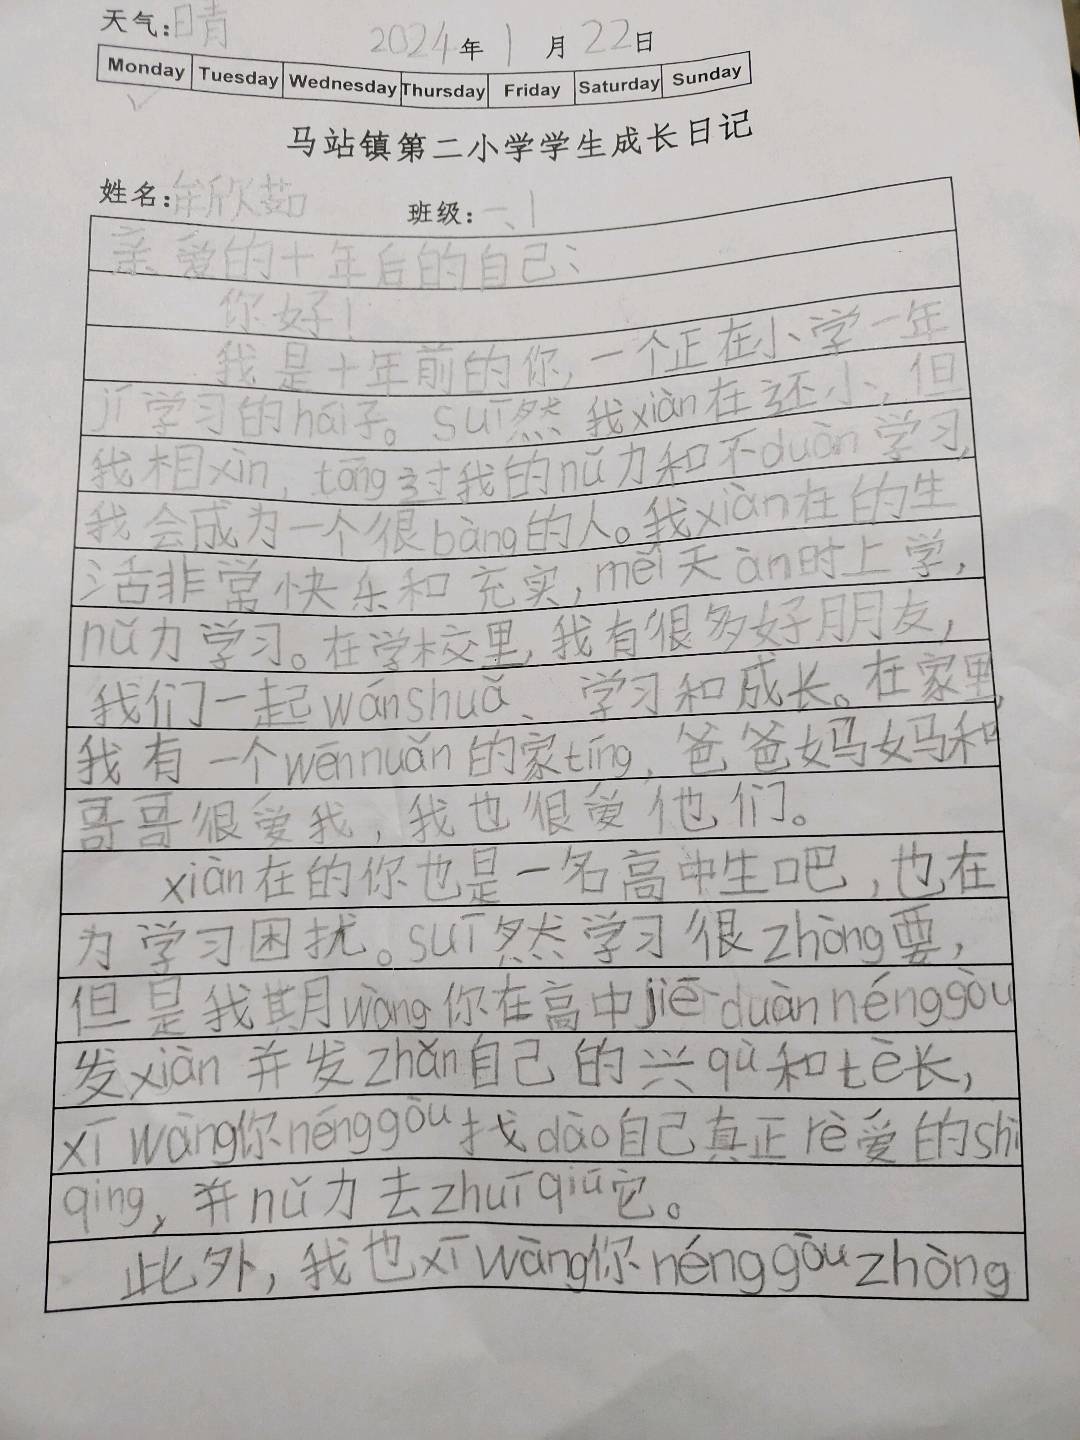 天气:晴 2024年1月22日
Monday Tuesday Wednesday Thursday Friday Saturday Sunday
马站镇第二小学学生成长日记
姓名:牟欣茹 班级:一、1
亲爱的十年后的自己:
你好!
我是十年前的你,一个正在小学一年
jí学习的hái子。suī然我xiàn在还小,但
我相xìn,tōng过我的nǔ力和不duàn学习,
我会成为一个很bàng的人。我xiàn在的生
活非常快乐和充实,měi天àn时上学,
nǔ力学习。在学校里,我有很多好朋友,
我们一起wánshuǎ、学习和成长。在家里,
我有一个wēnnuǎn的家tíng,爸爸妈妈和
哥哥很爱我,我也很爱他们。
xiàn在的你也是一名高中生吧,也在
为学习困扰。suī然学习很zhòng要,
但是我期wàng你在高中jiē duàn nénggòu
发xiàn并发zhǎn自己的兴qù和tè长,
xī wàng你nénggòu找dào自己真正rè爱的shì
qing,并nǔ力去zhuī qiú它。
此外,我也xī wàng你nénggòu zhòng